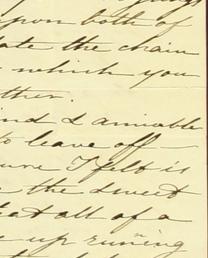 upon both of
late the chain
which you
ther.
ind & amiable
to leave off —
ure I felt is
the sweet
at all of a
up running